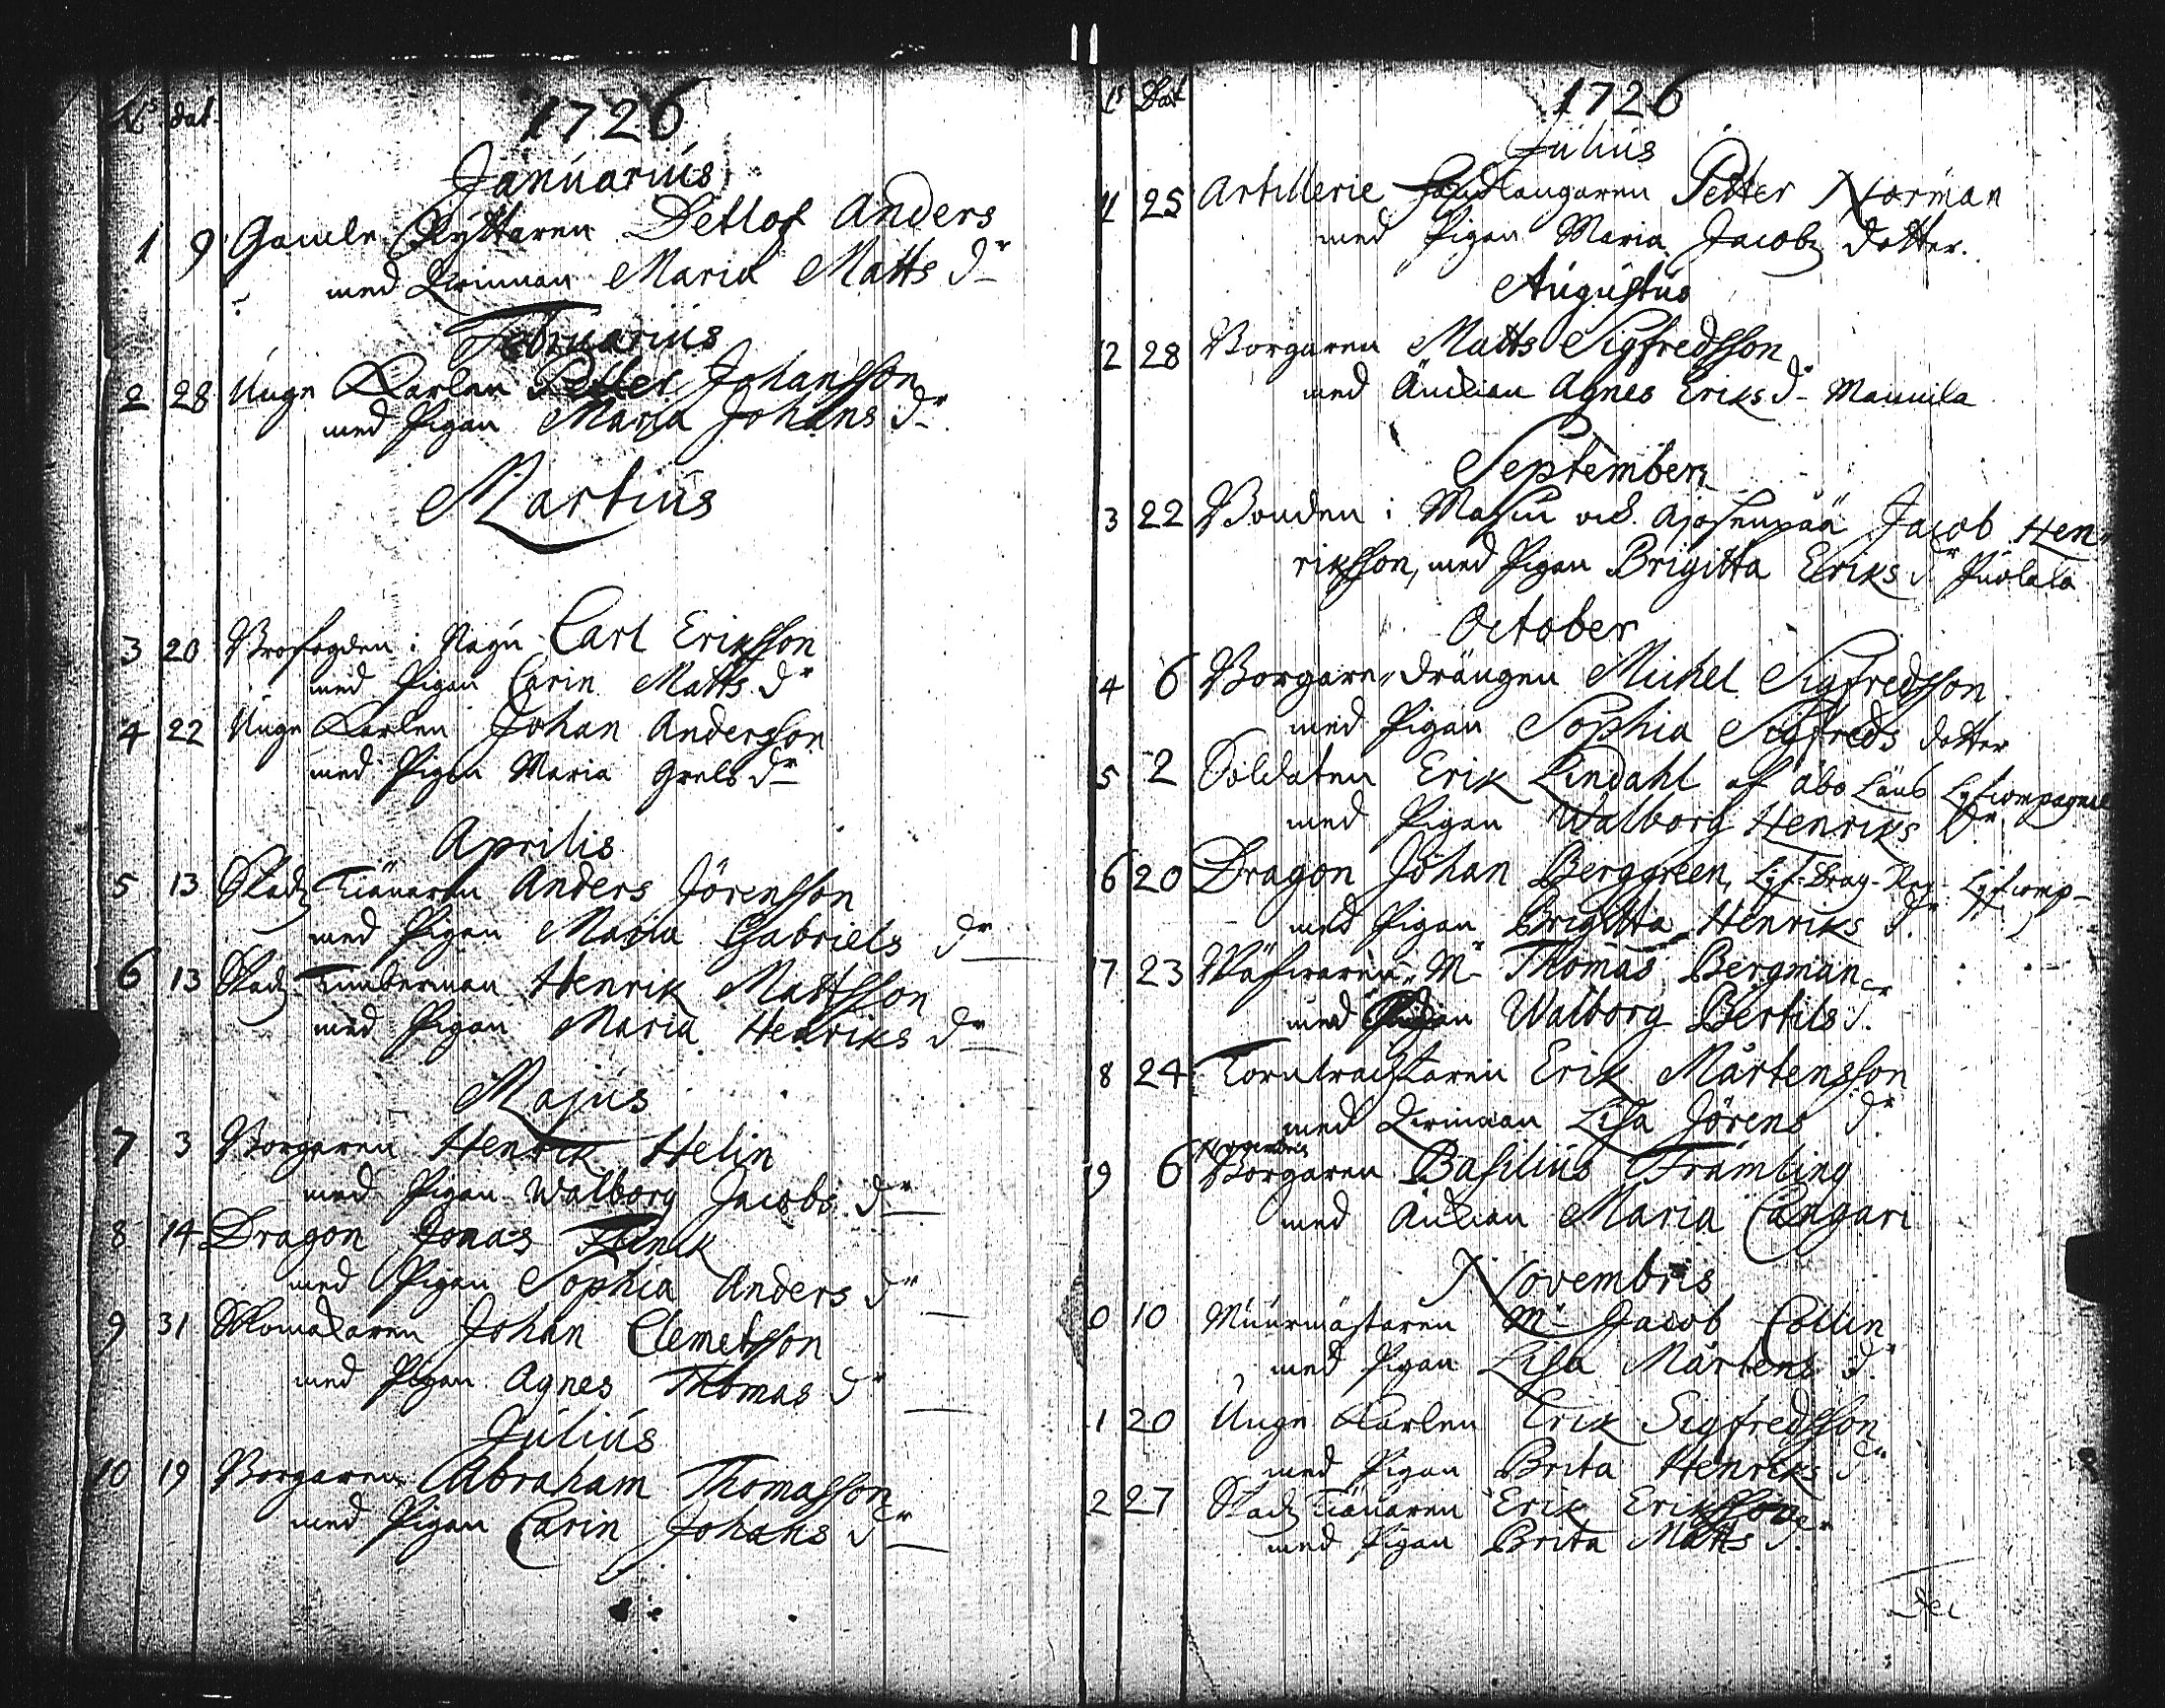 N:s dat.
1726
Januarius
1 9 Gamle Skyttaren Detlof Anders
med Qwinnan Maria Matts dr
Februarius
2 28 Unge Karlen Petter Johansson
med Pigan Maria Johans dr
Martius
3 20 Brofogden i Nagu Carl Eriksson
med Pigan Carin Matts dr
4 22 Unge Karlen Johan Andersson
med Pigan Maria Grels dr
Aprilis
5 13 Stadz Tiänaren Anders Jörensson
med Pigan Maria Gabriels dr
6 13 Stadz Timberman Henrik Mattsson
med Pigan Maria Henriks dr
Majus
7 3 Borgaren Henrik Helin
med Pigan Walborg Jacobs dr
8 14 Dragon Jonas Flinck
med Pigan Sophia Anders dr
9 31 Skomakaren Johan Clemetsson
med Pigan Agnes Thomas dr
Julius
10 19 Borgaren Abraham Thomasson
med Pigan Carin Johans dr
Dat
1726
Julius
25 Artillerie Handtlangaren Petter Norman
med Pigan Maria Jacobz dotter.
Augustus
2 28 Borgaren Matts Sigfredsson
med Änkian Agnes Eriks dr Mannila
September
3 22 Bonden i Masku och Ajosenpää Jacob Hen
riksson, med Pigan Brigitta Eriks dr Puolala
October
4 6 Borgare drängen Michel Sigfredsson
med Pigan Sophia Sigfreds dotter
5 2 Soldaten Erik Lindahl af åbo Läns Lyfcompagnie
med Pigan Walborg Henriks dr
6 20 Dragon Johan Berggreen, Lyf-Drag-Reg- Lyfcomp-
med Pigan Brigitta Henriks dr.
7 23 Mr Thomas Bergman
med Pigan Walborg Bertils dr.
8 24 Erik Mårtensson
med Qwinnan Lisa Jörens dr
Novembris
9 6 Borgaren Basilius Främling
med Änkian Maria Cangari
Novembris
0 10 Muurmästaren Mr Jacob Collin
med Pigan Lisa Mårtens dr
1 20 Unge Karlen Erik Sigfredsson
med Pigan Brita Henriks dr
2 27 Stadz Tiänaren Erik Eriksson
med Pigan Brita Matts dr.